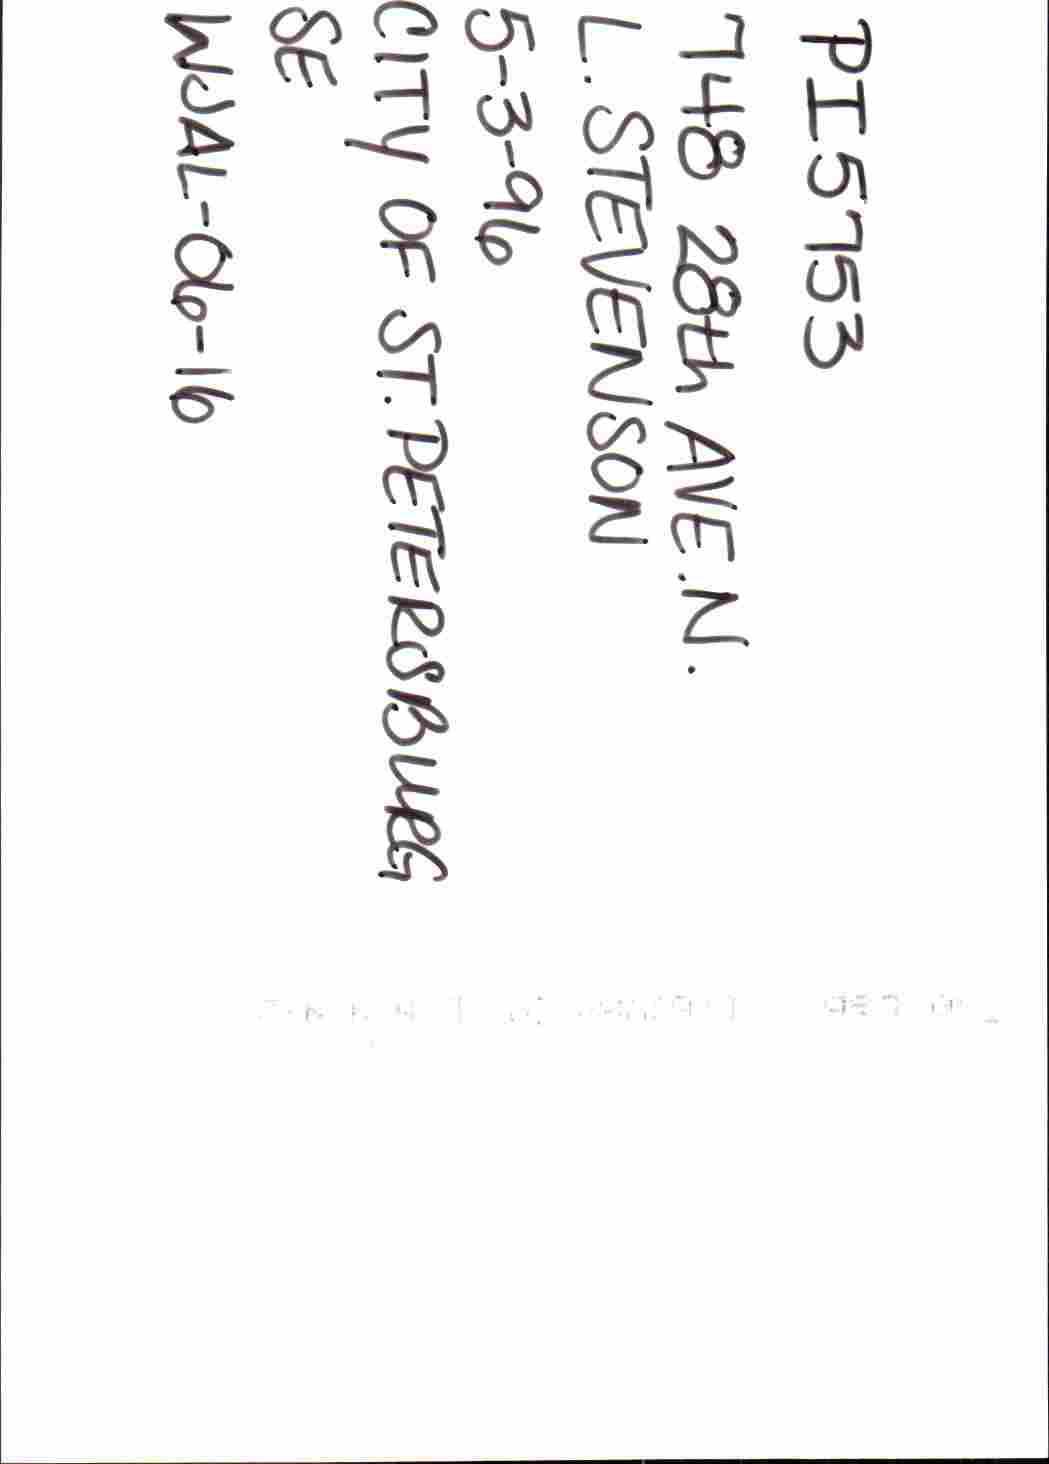 PI5753
748 28th AVE.N.
L. STEVENSON
5-3-96
CITY OF ST. PETERSBURG
SE
WJAL-06-16